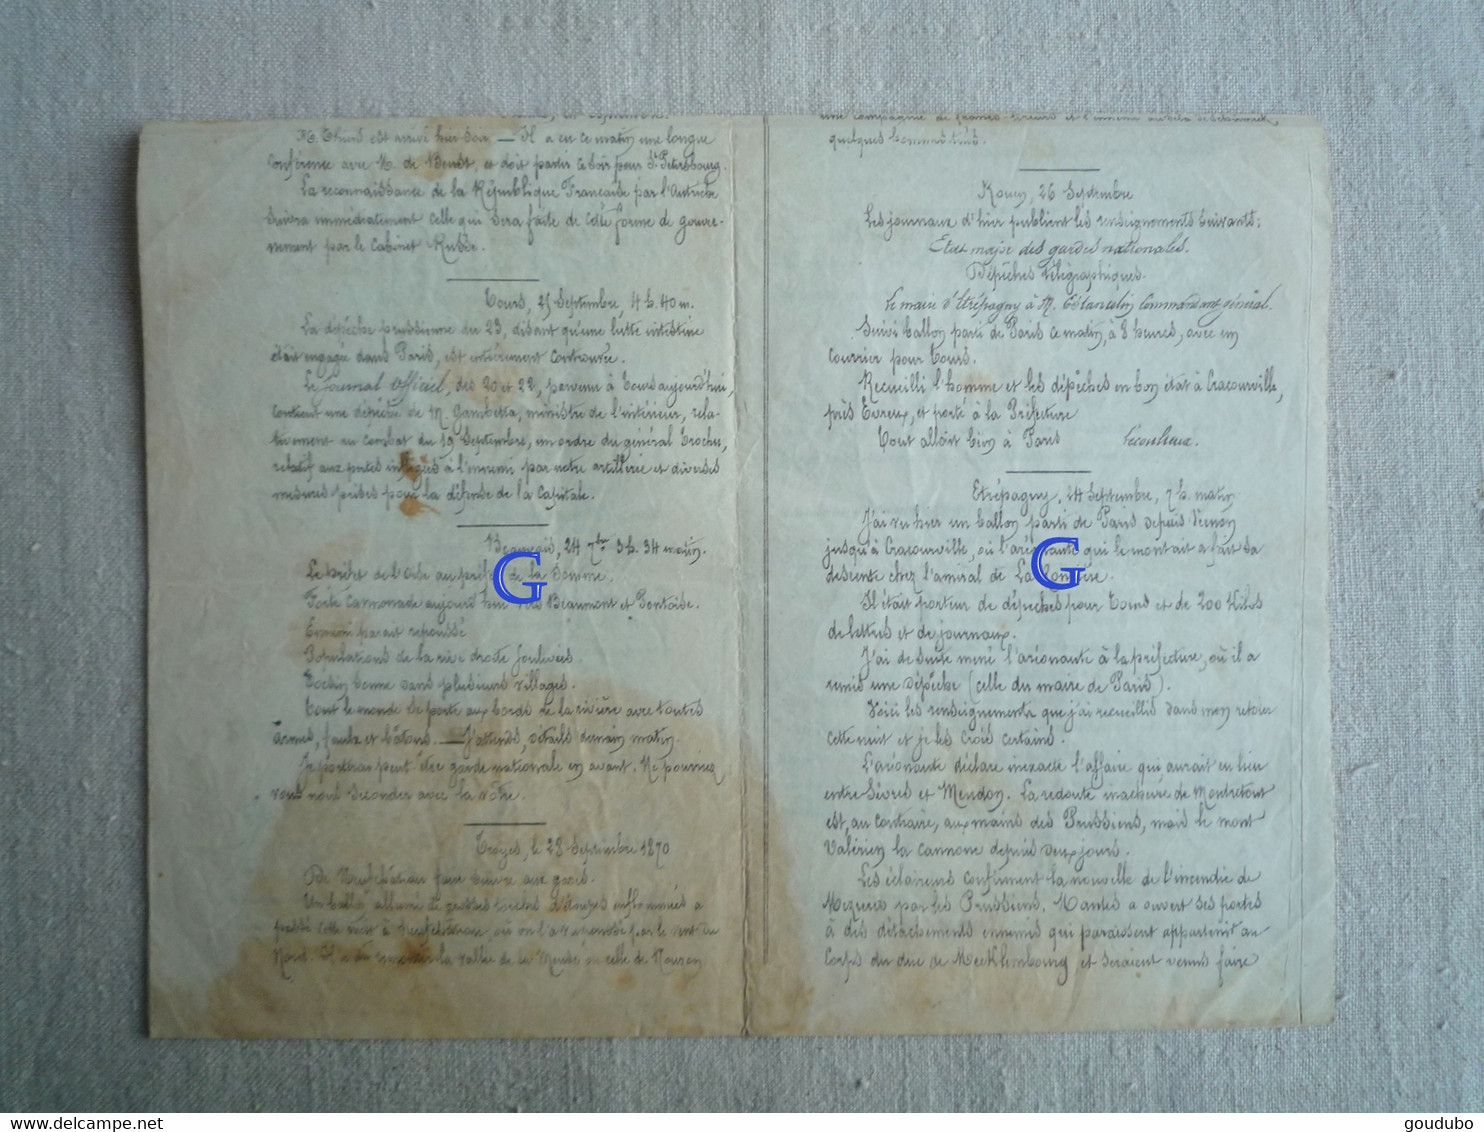 M. Thiers est arrivé hier soir — Il a eu ce matin une longue
conférence avec M. de Beust, et doit partir ce soir pour St. Petersbourg.
La reconnaissance de la République Française par l'Autriche
suivra immédiatement celle qui sera faite de cette forme de gouver-
nement par le Cabinet Russe.
Tours, 25 Septembre, 4 h. 40 m.
La dépêche prussienne du 23, disant qu'une lutte intestine
était engagée dans Paris, est entièrement controuvée.
Le Journal Officiel, des 20 et 22, parvenu à Tours aujourd'hui,
contient une dépêche de M. Gambetta, ministre de l'intérieur, rela-
tivement au combat du 19 Septembre, un ordre du général Trochu,
relatif aux pertes infligées à l'ennemi par notre artillerie et diverses
mesures prises pour la défense de la Capitale.
Beauvais, 24 7bre 3 h. 34 matin.
Le préfet de l'Oise au préfet de la Somme.
Forte canonnade aujourd'hui vers Beaumont et Pontoise.
Ennemi parait repoussé
Populations de la rive droite soulevées.
Tocsin sonne dans plusieurs villages.
Tout le monde se porte aux bords de la rivière avec toutes
armes, faulx et bâtons. — J'attends, détails demain matin.
Je porterai peut être garde nationale en avant. Ne pourriez
vous nous seconder avec la vôtre.
Troyes, le 23 Septembre 1870
De Neufchâteau faire suivre aux
Un ballon allumé
passé cette nuit à Neufchâteau, où on l'a vu poussé par le vent du
Nord. Il a dû la vallée de la Meuse ou celle de
une compagnie de francs-tireurs et l'ennemi au delà de
quelques hommes tués.
Rouen, 26 Septembre
Les journaux d'hier publient les renseignements suivants:
Etat major des gardes nationales.
Dépêches télégraphiques.
Le maire d'Etrépagny à M. Estancelin Commandant général.
Suivi ballon parti de Paris ce matin, à 8 heures, avec un
courrier pour Tours.
Recueilli l'homme et les dépêches en bon état à Cracouville,
près Evreux, et porté à la Préfecture
Tout allait bien à Paris Lecouteux.
Etrépagny, 24 Septembre, 7 h. matin
J'ai vu hier un ballon parti de Paris depuis Vernon
jusqu'à Cracouville, où l'aéronaute qui le montait a fait sa
descente chez l'amiral de La Roncière.
Il était porteur de dépêches pour Tours et de 200 Kilos
de lettres et de journaux.
J'ai de suite mené l'aéronaute à la préfecture, où il a
remis une dépêche (celle du maire de Paris).
Voici les renseignements que j'ai recueillis dans mon retour
cette nuit et je les crois certains.
L'aéronaute déclare inexacte l'affaire qui aurait eu lieu
entre Sèvres et Meudon. La redoute inachevée de Montretout
est, au contraire, aux mains des Prussiens, mais le mont
Valérien la canonne depuis deux jours.
Les éclaireurs confirment la nouvelle de l'incendie de
Mezières par les Prussiens. Mantes a ouvert ses portes
à des détachements ennemis qui paraissent appartenir au
Corps du duc de Mecklembourg et seraient venus faire
G
G
goudubo